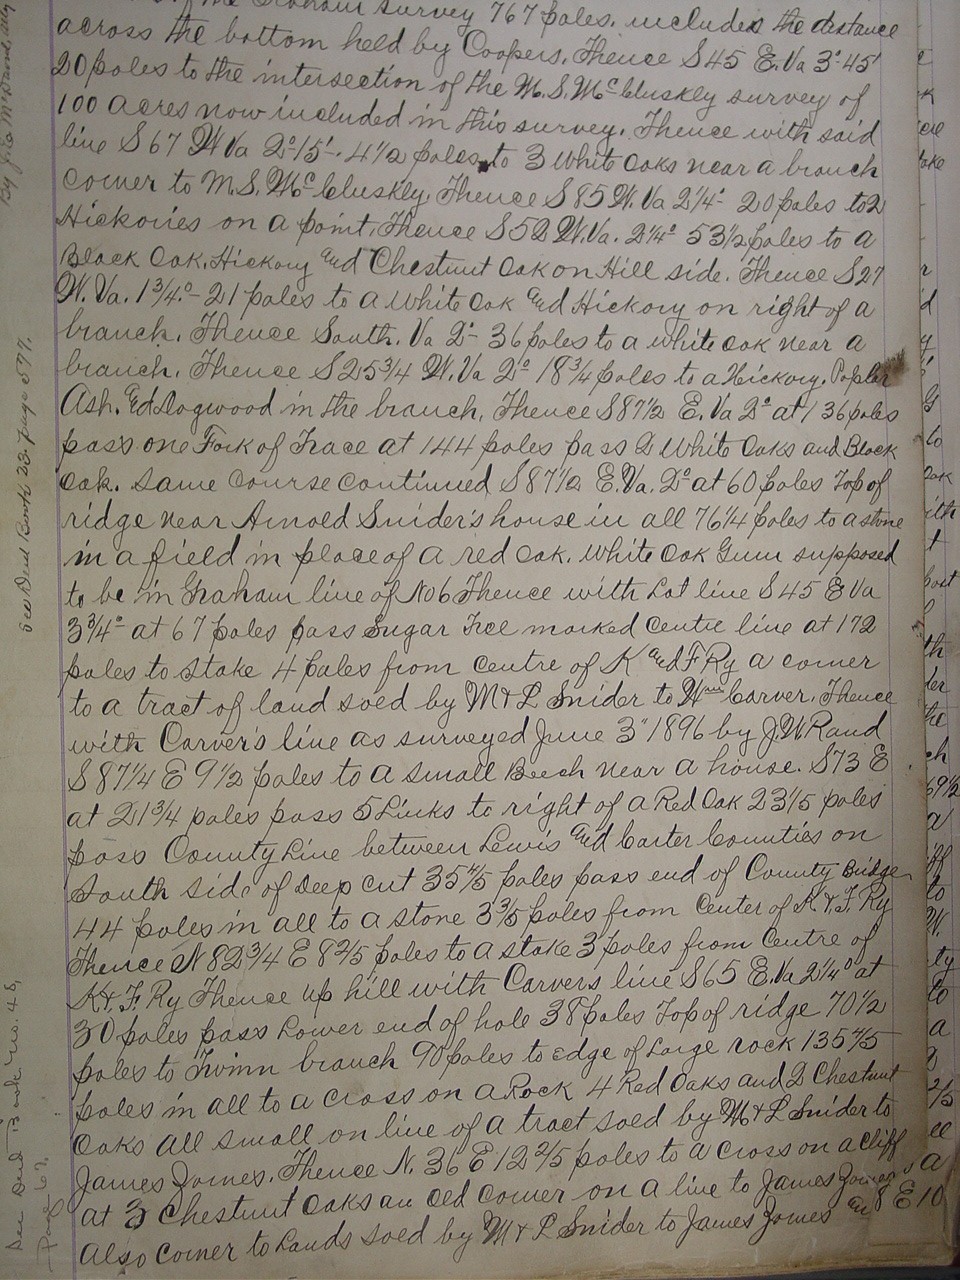 the Graham survey 767 poles. includes the distance
across the bottom held by Coopers. Thence S 45 E. Va 3°45'
20 poles to the intersection of the M. S. McCluskly survey of
100 acres now included in this survey. Thence with said
line S 67 W Va 2°15'- 4 1/2 poles to 3 White Oaks near a branch
corner to M. S. McCluskly. Thence S 85 W. Va 2 1/4° 20 poles to 2
Hickories on a point. Thence S 52 W. Va. 2 1/4° 53 1/2 poles to a
Black Oak. Hickory and Chestnut Oak on Hill side. Thence S 27
W. Va. 1 3/4.°- 21 poles to a White Oak and Hickory on right of a
branch. Thence South. Va 2°- 36 poles to a white oak near a
branch. Thence S 25 3/4 W. Va 2° 18 3/4 poles to a Hickory. Poplar
Ash. and Dogwood in the branch. Thence S 87 1/2 E. Va 2° at 136 poles
pass one Fork of Trace at 144 poles pass 2 White Oaks and Black
Oak. same course continued S 87 1/2 E. Va. 2° at 60 poles Top of
ridge near Arnold Snider's house in all 76 1/4 poles to a stone
in a field in place of a red oak. White Oak Gum supposed
to be in Graham line of No 6 Thence with Lot line S 45 E Va
3 3/4° at 67 poles pass Sugar Tree marked centre line at 172
poles to Stake 4 poles from centre of K and F Ry a corner
to a tract of land soed by M & L Snider to Wm Carver. Thence
with Carver's line as surveyed June 3" 1896 by J. W Rand
S 87 1/4 E 9 1/2 poles to a small Beech near a house. S 73 E
at 21 3/4 poles pass 5 Links to right of a Red Oak 23 1/5 poles
pass County Line between Lewis and Carter Counties on
South side of Deep cut 35 4/5 poles pass end of County Bridge
44 poles in all to a stone 3 3/5 poles from Center of K & F. Ry
Thence N 82 3/4 E 8 2/5 poles to a stake 3 poles from Centre of
K & F. Ry Thence up hill with Carvers line S 65 E. Va 2 1/4° at
30 poles pass Lower end of hole 38 poles Top of ridge 70 1/2
poles to Twinn branch 90 poles to edge of Large rock 135 4/5
poles in all to a cross on a Rock 4 Red Oaks and 2 Chestnut
Oaks all small on line of a tract soed by M & L Snider to
James Jomes. Thence N. 36 E 12 2/5 poles to a cross on a cliff
at 3 Chestnut Oaks an Old Corner on a line to James Jomes
also Corner to Lands soed by M & L Snider to James Jomes
8 E 10
See Deed Book 33. page 577.
See Deed Book No. 48,
Page 62.